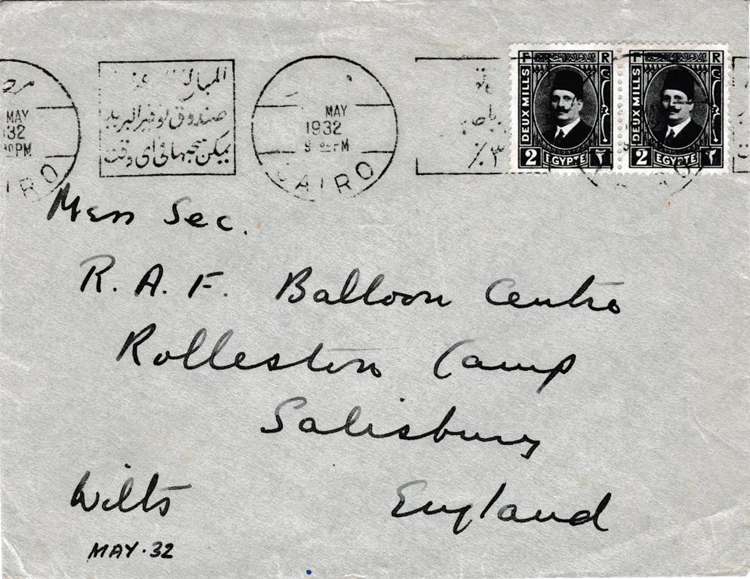 MAY
1932
PM
CAIRO
صندوق توفير البريد
يمكن سحبها في أي وقت
MAY
1932
9 PM
CAIRO
٣٪
F R F R
DEUX MILLS DEUX MILLS
2 EGYPTE ٢ 2 EGYPTE ٢
Mess Sec.
R.A.F. Balloon Centre
Rolleston Camp
Salisbury
Wilts England
MAY.32